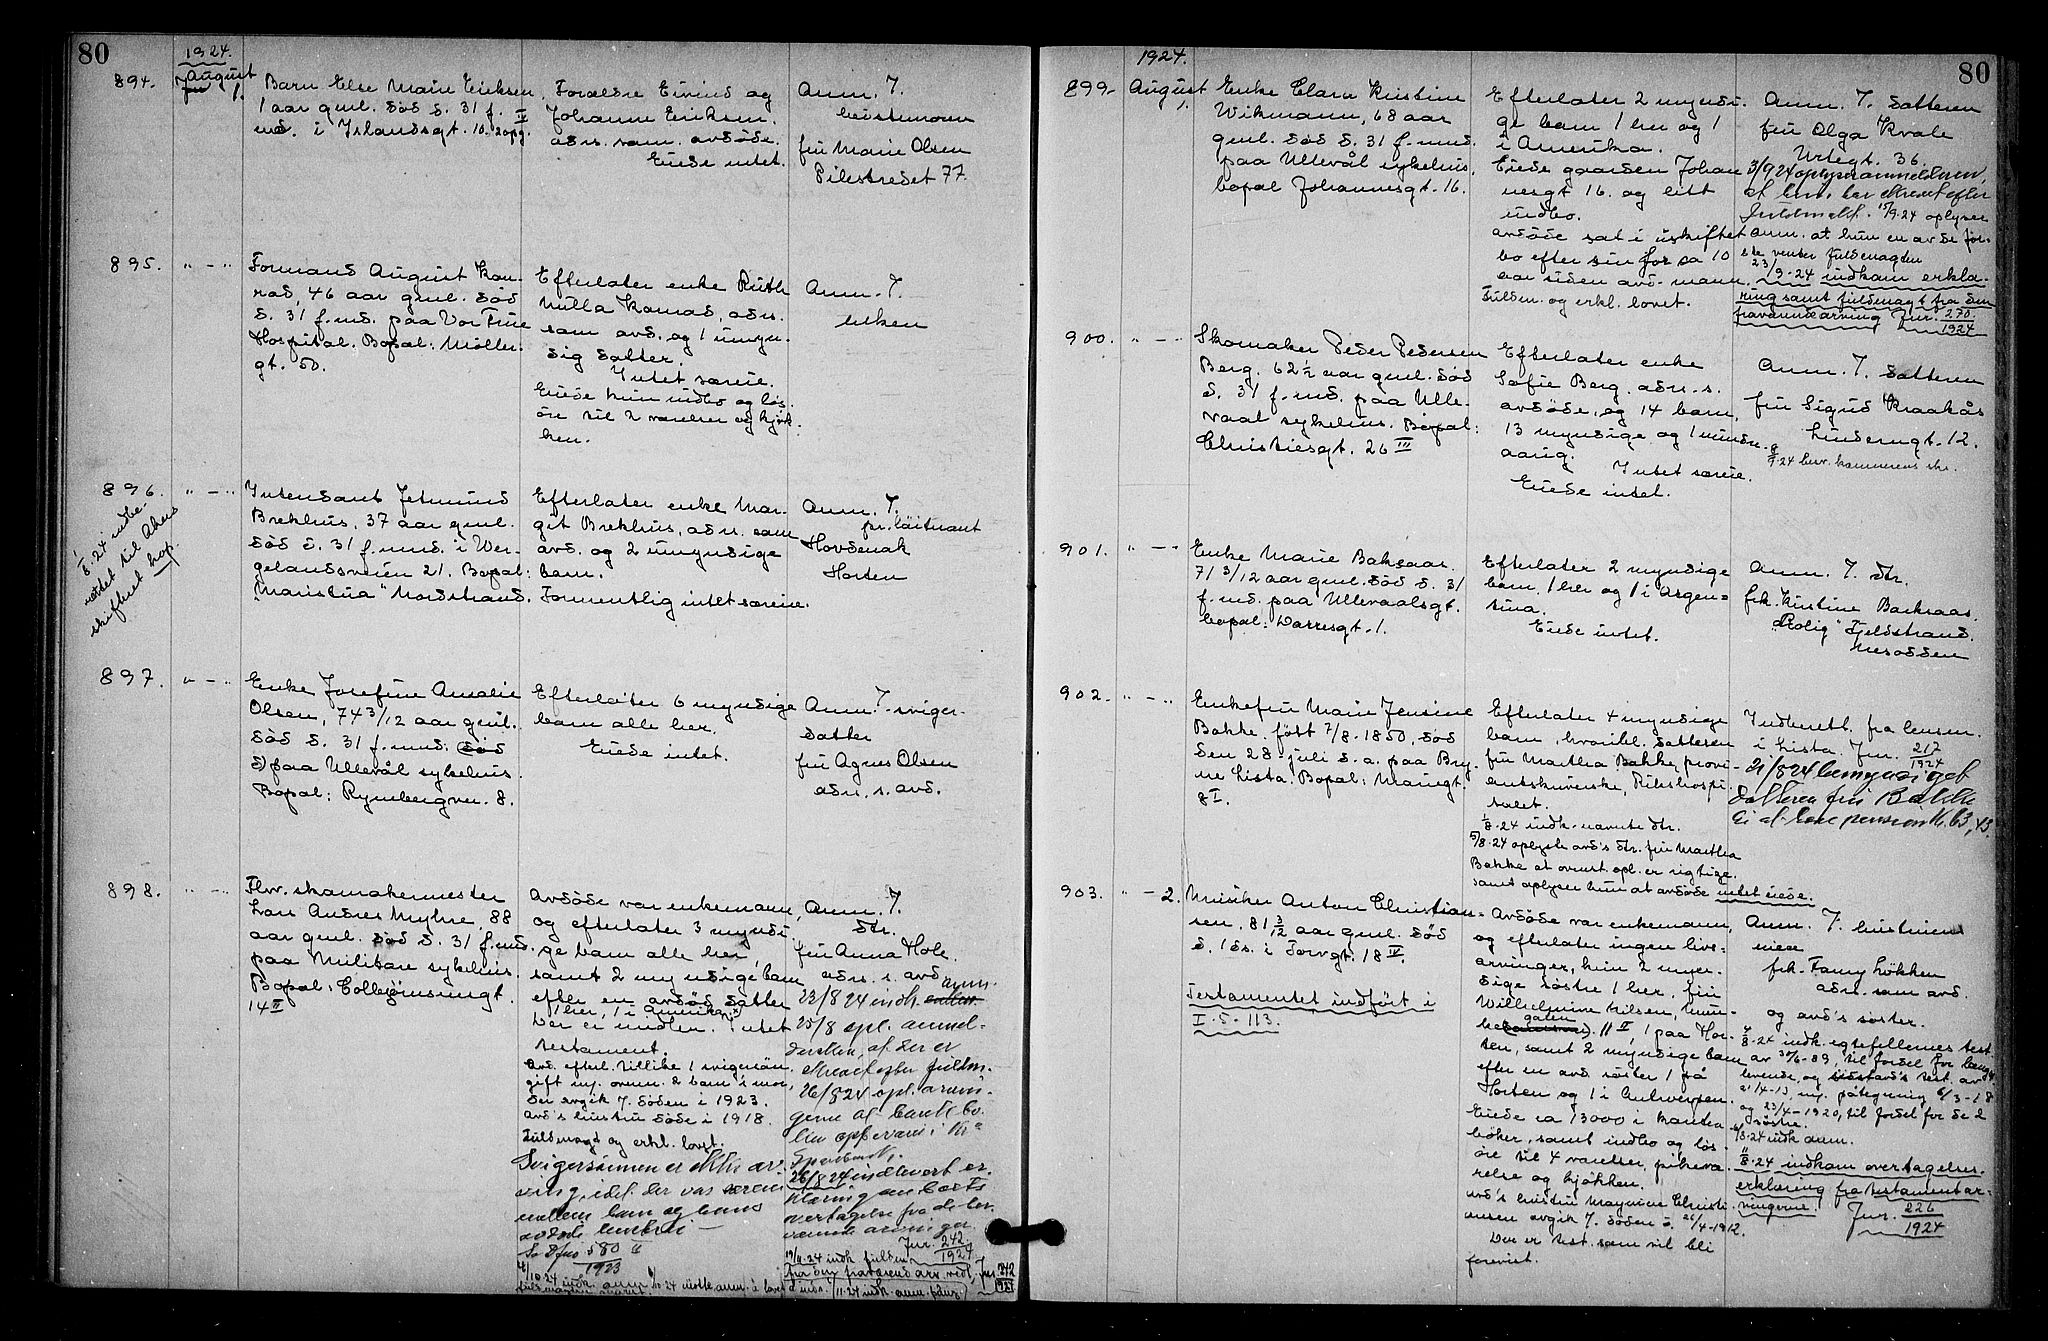 80
1924.
894.
August
1.
Barn Else Marie Eriksen
1 aar gml. død d. 31 f.
md. i Islandsgt. 10. 2 opg.
Forældre Eivind og
Johanne Eriksen
adr. som avdøde.
Eiede intet.
Anm. 7.
fru Marie Olsen
Pilestredet 77.
895.
" - "
Formand August Kon-
rad, 46 aar gml. død
d. 31 f. md. paa Vor Frue
Hospital. Bopæl: Møller-
gt. 50.
Efterlater enke Ruth
Milla Konrad, adr.
som avd. og 1 umyn-
dig datter.
Intet særeie.
Eiede kun indbo og løs-
øre til 2 værelser og kjøk-
ken.
Anm. 7.
enken
896.
" - "
1/8-24 indbe-
rettet til Akers
skifteret
Intendant Jetmund
Brekhus, 37 aar gml.
død d. 31 f. md. i Wer-
gelandsveien 21. Bopæl:
"Maristua" Nordstrand.
Efterlater enke Mar-
git Brekhus, adr. som
avd. og 2 umyndige
barn.
Formentlig intet særeie.
Anm. 7.
pr. løitnant
Hovdenak
Horten
897.
" - "
Enke Josefine Amalie
Olsen, 74 3/12 aar gml.
død d. 31 f. md.
paa Ullevål sykehus.
Bopæl: Rymbergvn. 8.
Efterlater 6 myndige
barn alle her.
Eiede intet.
Anm. 7. sviger-
datter
fru Agnes Olsen
adr. s. avd.
898.
" - "
Fhv. skomakermester
Lars Andres Myhre, 88
aar gml. død d. 31 f. md.
paa Militære sykehus.
Bopæl: Colletjørnsengt.
14 II
Avdøde var enkemann
og efterlater 3 myndi-
ge barn alle her
samt 2 myndige barn
efter en avdød datter
1 her, 1 i Amerika
Der er midler. Intet
testament.
Avd. efterl. tillike 1 svigersøn,
gift m. ovenn. 2 barn's mor,
der avgik 7. døden i 1923.
avd's hustru døde i 1918.
Fuldmagt og erkl. lovet.
Svigersønnen er ikke ar-
ving, idet der var særeie
mellem ham og hans
avdøde hustru -
580
1923
Anm. 7.
dtr.
fru Anna Hole.
adr. s. avd.
23/8 24 indk. anm.
25/8 opl. anmel-
dersken, at der er
26/8 24 opl. anm-
26/8 24 indlevert er-
klæring om boets
overtagelse fra de
arvinger.
Jnr. 242
1924
19/11-24 indk. fuldm.
fra den fraværende arv. vedl. Jnr. 242
1924
80
1924.
899.
August
1.
Enke Clara Kristine
Wikmann, 68 aar
gml. død d. 31 f. md.
paa Ullevål sykehus,
bopæl Johannesgt. 16.
Efterlater 2 myndi-
ge barn 1 her og 1
i Amerika.
Eiede gaarden Johan-
nesgt 16. og litt
indbo.
Avdøde sat i uskiftet
bo efter sin for ca 10
aar siden avd. mann.
Fuldm. og erkl. lovet.
Anm. 7. datteren
fru Olga Kvale
Urtegt. 36.
3/9 24 oplyser anmelderen,
15/9-24 oplyser
anm. at hun en av de før-
ste venter fuldmagten
23/9-24 indkom erklæ-
ring samt fuldmagt fra den
fraværende arving Jnr. 270
1924
900.
" - "
Skomaker Peder Pedersen
Berg, 62 1/2 aar gml. død
d. 31 f. md. paa Ulle-
vaal sykehus. Bopæl:
Christiesgt. 26 III
Efterlater enke
Sofie Berg, adr. s.
avdøde, og 14 barn,
13 myndige og 1 mindre-
aarig.
Intet særeie.
Eiede intet.
Anm. 7. datteren
fru Sigrid Kraakås
Linderngt. 12.
901.
" - "
Enke Marie Baksaas.
71 3/12 aar gml. død d. 31
f. md. paa Ullevaalsgt.
bopæl: Darresgt. 1.
Efterlater 2 myndige
barn, 1 her og 1 i Argen-
tina.
Eiede intet.
Anm. 7. dtr.
frk. Kristine Baksaas
"Rolig" Fjeldstrand
Nesodden
902.
" - "
Enkefru Marie Jensine
Bakke, født 7/8-1850, død
den 28 juli d. a. paa Bry-
ne Lista. Bopæl: Maurigt.
8 I.
Efterlater 4 myndige
barn, hvoribl. datteren
fru Martha Bakke, provi-
antskriverske, Rikshospi-
talet.
1/8-24 indk. nævnte dtr.
5/8-24 oplyste avd's dtr. fru Martha
Bakke at ovenst. opl. er rigtige.
samt oplyser hun at avdøde intet eiede.
Indberett. fra lensm.
i Lista. Jnr. 217
1924
21/8 24
datteren fru Bakke
903.
" - 2.
Musiker Anton Christian-
sen, 81 3/12 aar gml. død
d. 1 ds. i Torvgt. 18 IV.
Testamentet indført i
I. 5 - 113.
Avdøde var enkemann,
og efterlater ingen livs-
arvinger, kun 2 myn-
dige søstre 1 her, fru
Wilhelmine Nilsen, Munke-
gaten 11 II, 1 paa Hor-
ten, samt 2 myndige barn av
efter en avd. søster 1 på
Horten og 1 i Antwerpen.
Eiede ca 13000 i bank-
bøker, samt indbo og løs-
øre til 4 værelser, pikeva-
relse og kjøkken.
avd's hustru Maynine Christi-
ansen avgik 7. døden d. 26/4-1912.
Der er test. som vil bli
forevist.
Anm. 7. hustruens
niece
frk. Fanny Løkken
adr. som avd.
og avd's søster.
4/8-24 indk. egtefellernes test.
av 30/6-89, til fordel for længst-
levende, og avd's test. av
21/4-13, m. påtegning 6/3-18
og 23/4-1920, til fordel for de 2
søstre.
11/8-24 indkom overtagelses-
erklæring fra testamentar-
vingerne.
Jnr. 226
1924